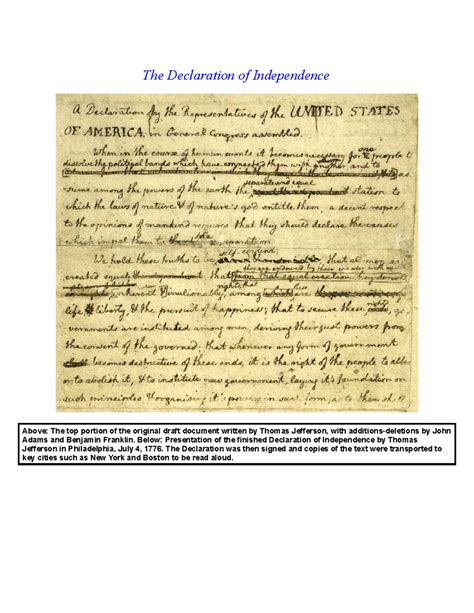 The Declaration of Independence
A Declaration by the Representatives of the UNITED STATES
OF AMERICA, in General Congress assembled.
When in the course of human events it becomes necessary for one people to
dissolve the political bands which have connected them with another, and to
as-
separate and equal
sume among the powers of the earth the station to
which the laws of nature & of nature's god entitle them, a decent respect
to the opinions of mankind requires that they should declare the causes
which impel them to the separation.
self evident
We hold these truths to be that all men are
created equal that
inherent & inalienable, among are
life, & liberty, & the pursuit of happiness; that to secure these go-
vernments are instituted among men, deriving their just powers from
the consent of the governed; that whenever any form of government
becomes destructive of these ends, it is the right of the people to alter
or to abolish it, & to institute new government, laying it's foundation on
such principles & organising it's powers in such form, as to them sh
Above: The top portion of the original draft document written by Thomas Jefferson, with additions-deletions by John
Adams and Benjamin Franklin. Below: Presentation of the finished Declaration of Independence by Thomas
Jefferson in Philadelphia, July 4, 1776. The Declaration was then signed and copies of the text were transported to
key cities such as New York and Boston to be read aloud.